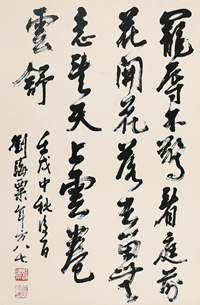 寵辱不驚看庭前
花開花落去留無
意望天上雲卷
雲舒
壬戌中秋後百
劉海粟年方八七